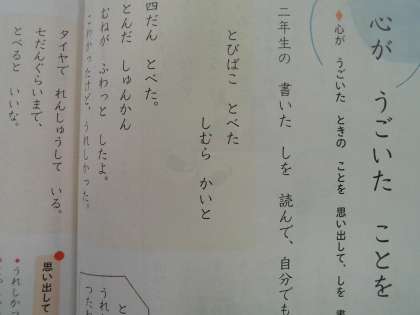 心が うごいた ことを
心が うごいた ときの ことを 思い出して、しを 書
二年生の 書いた しを 読んで、自分でも
とびばこ とべた
しむら かいと
四だん とべた。
とんだ しゅんかん
むねが ふわっと したよ。
こわかったけど、うれしかった。
タイヤで れんしゅうして いる。
七だんぐらいまで、
とべると いいな。
と
うれし
つたわ
思い出して
うれしか